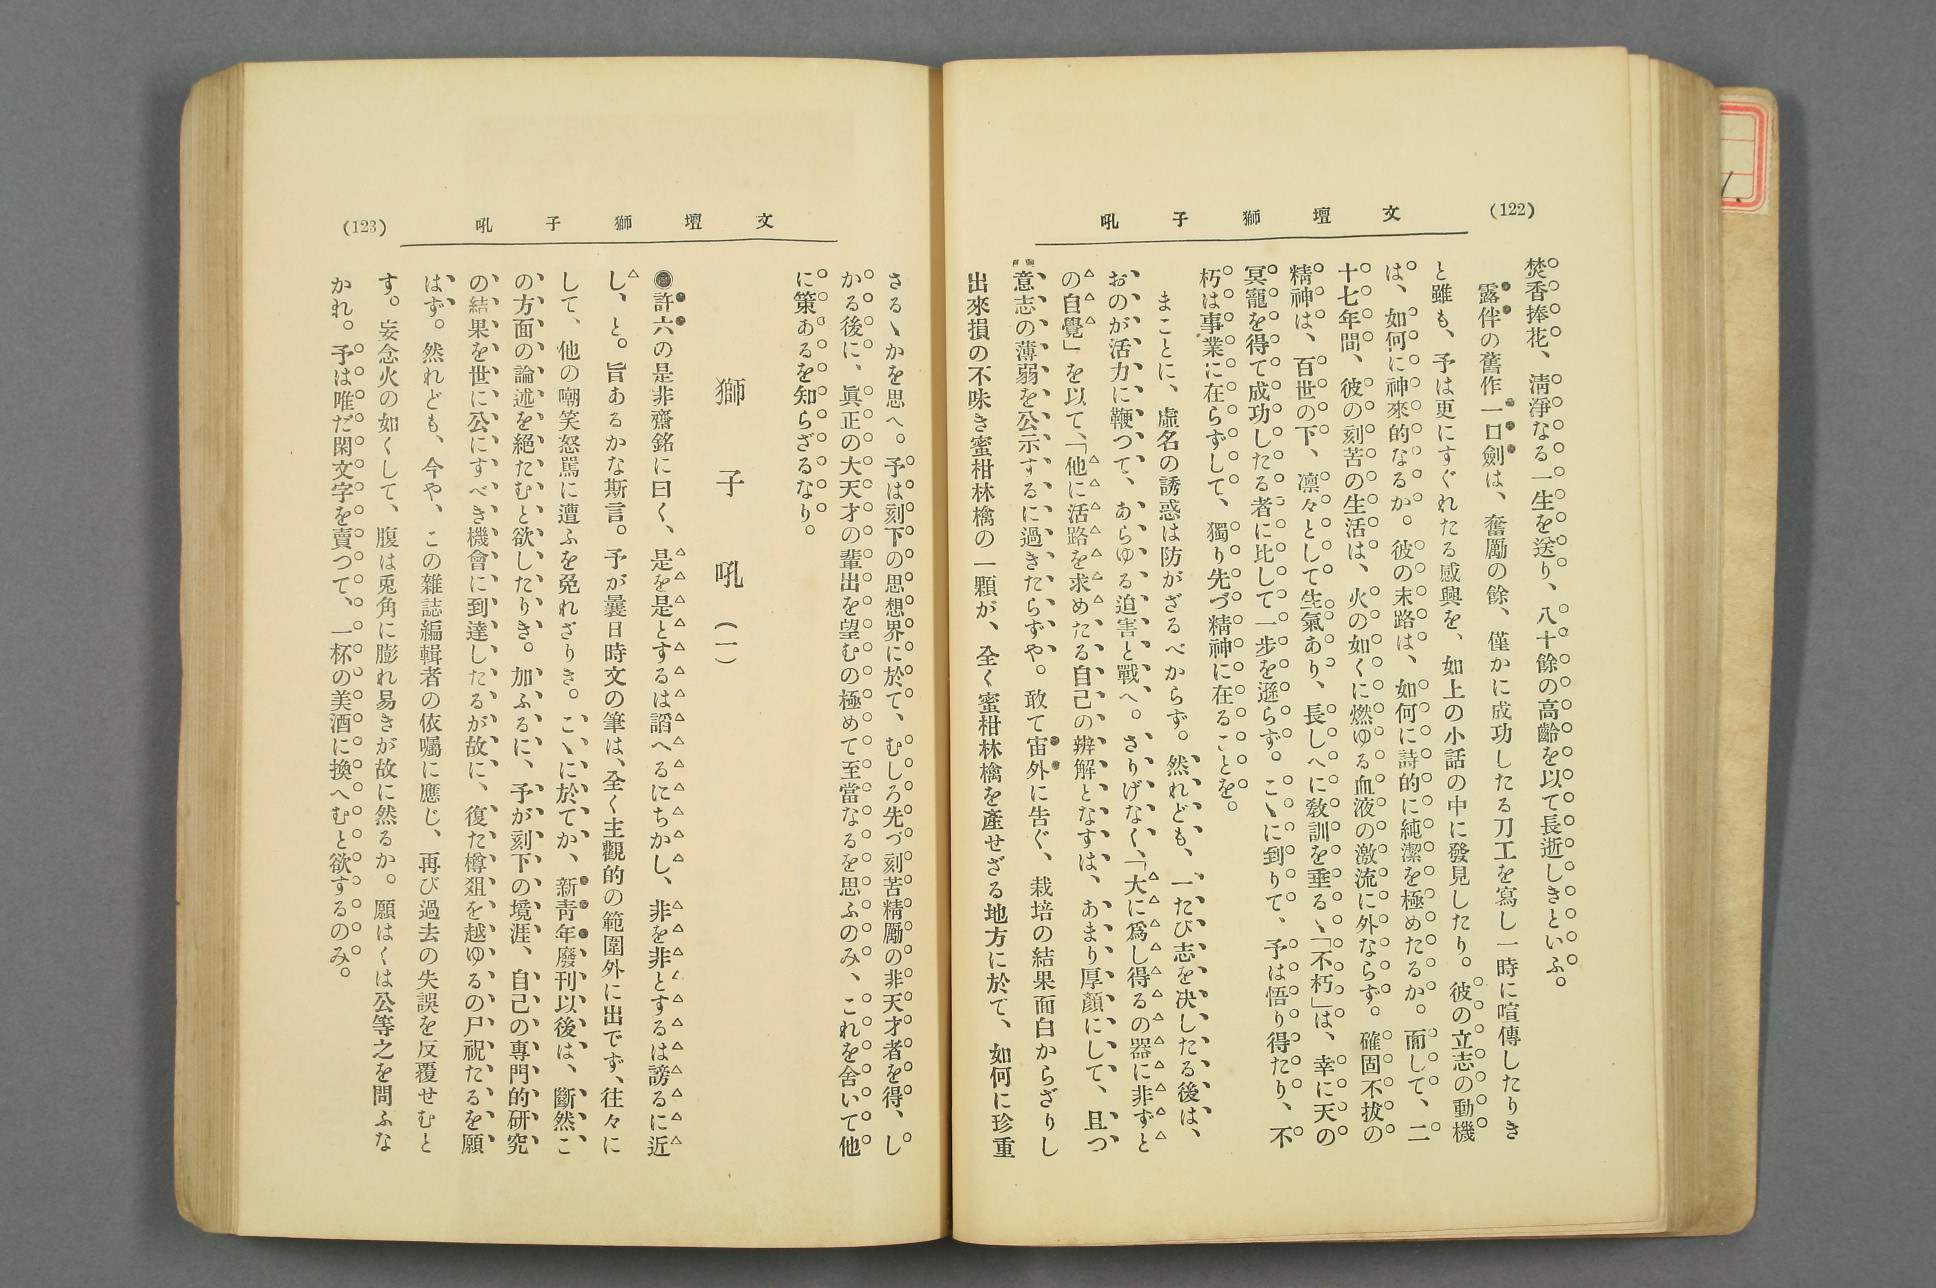 (122)
文壇獅子吼
焚香捧花、淸淨なる一生を送り、八十餘の高齡を以て長逝しきといふ。
露伴の舊作一口劍は、奮勵の餘、僅かに成功したる刀工を寫し一時に喧傳したりき
と雖も、予は更にすぐれたる感興を、如上の小話の中に發見したり。彼の立志の動機
は、如何に神來的なるか。彼の末路は、如何に詩的に純潔を極めたるか。而して、二
十七年間、彼の刻苦の生活は、火の如くに燃ゆる血液の激流に外ならず。確固不拔の
精神は、百世の下、凛々として生氣あり、長しへに敎訓を垂るゝ「不朽」は、幸に天の
冥寵を得て成功したる者に比して一步を遜らず。こゝに到りて、予は悟り得たり、不
朽は事業に在らずして、獨り先づ精神に在ることを。
まことに、虛名の誘惑は防がざるべからず。然れども、一たび志を決したる後は、
おのが活力に鞭つて、あらゆる迫害と戰へ。さりげなく、「大に爲し得るの器に非ずと
の自覺」を以て、「他に活路を求めたる自己の辨解となすは、あまり厚顏にして、且つ
意志の薄弱を公示するに過きたらずや。敢て宙外に告ぐ、栽培の結果面白からざりし
出來損の不味き蜜柑林檎の一顆が、全く蜜柑林檎を產せざる地方に於て、如何に珍重
(123)
文壇獅子吼
さるゝかを思へ。予は刻下の思想界に於て、むしろ先づ刻苦精勵の非天才者を得、し
かる後に、眞正の大天才の輩出を望むの極めて至當なるを思ふのみ、これを舍いて他
に策あるを知らざるなり。
獅子吼(一)
◉許六の是非齋銘に曰く、是を是とするは謟へるにちかし、非を非とするは謗るに近
し、と。旨あるかな斯言。予が曩日時文の筆は、全く主觀的の範圍外に出でず、往々に
して、他の嘲笑怒罵に遭ふを免れざりき。こゝに於てか、新靑年廢刊以後は、斷然こ
の方面の論述を絕たむと欲したりき。加ふるに、予が刻下の境涯、自己の專門的硏究
の結果を世に公にすべき機會に到達したるが故に、復た樽俎を越ゆるの尸祝たるを願
はず。然れども、今や、この雜誌編輯者の依囑に應じ、再び過去の失誤を反覆せむと
す。妄念火の如くして、腹は兎角に膨れ易きが故に然るか。願はくは公等之を問ふな
かれ。予は唯だ閑文字を賣つて、一杯の美酒に換へむと欲するのみ。